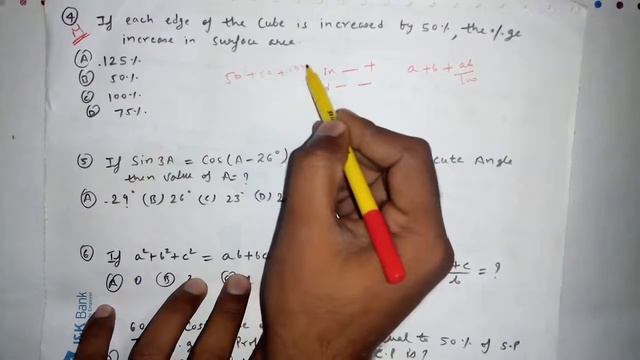 ④ If each edge of the Cube is increased by 50%, the %ge
increase in surface area
(A) .125%
(B) 50%
(C) 100%
(D) 75%
50 + 50 +
In — +
— —
a + b + ab/100
⑤ If Sin3A = Cos(A-26°) cute Angle
then value of A = ?
(A) .29° (B) 26° (C) 23° (D) 2
⑥ If a²+b²+c² = ab+bc +c/b = ?
(A) 0 (B)
J&K Bank
60 Cos
ual to 50% of S.P
C.P is ?